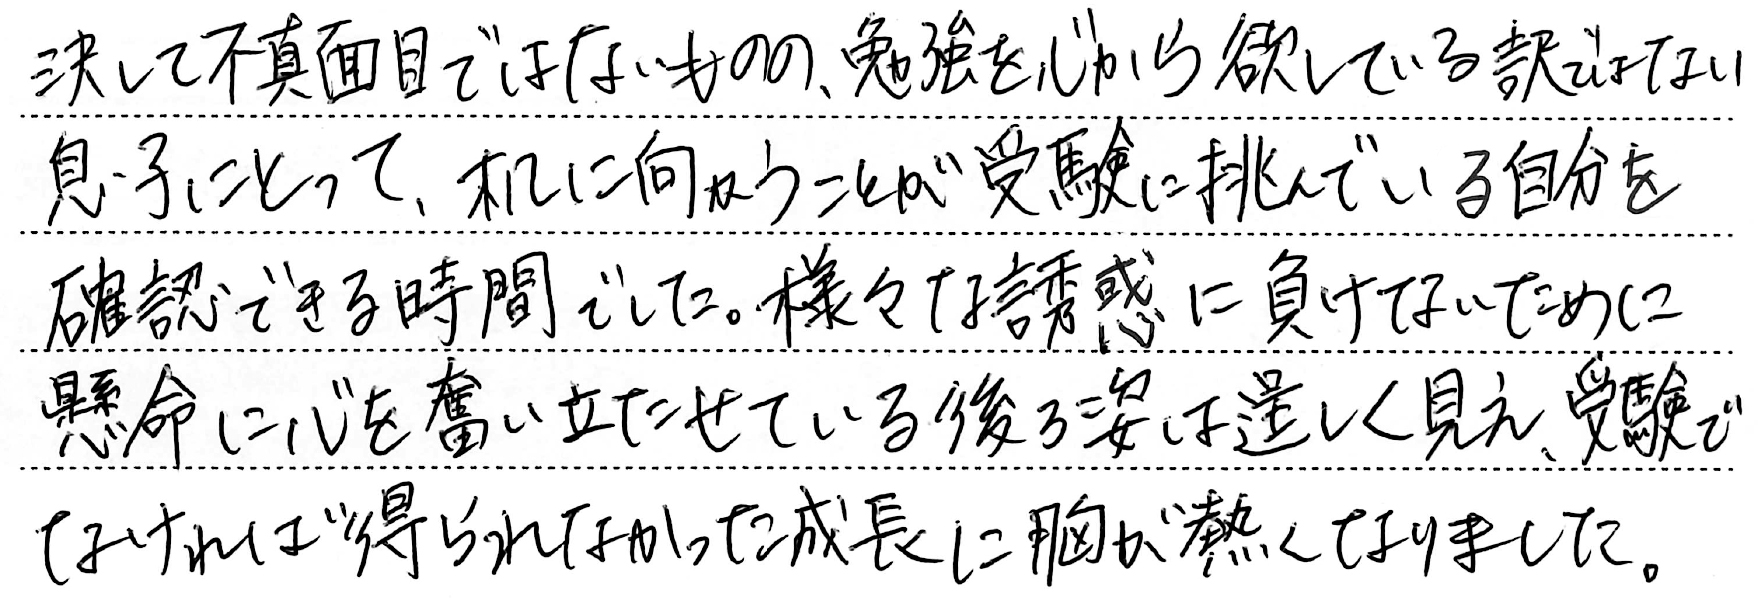 決して不真面目ではないものの、勉強を心から欲している訳ではない
息子にとって、机に向かうことが受験に挑んでいる自分を
確認できる時間でした。様々な誘惑に負けないために
懸命に心を奮い立たせている後ろ姿は逞しく見え、受験で
なければ得られなかった成長に胸が熱くなりました。